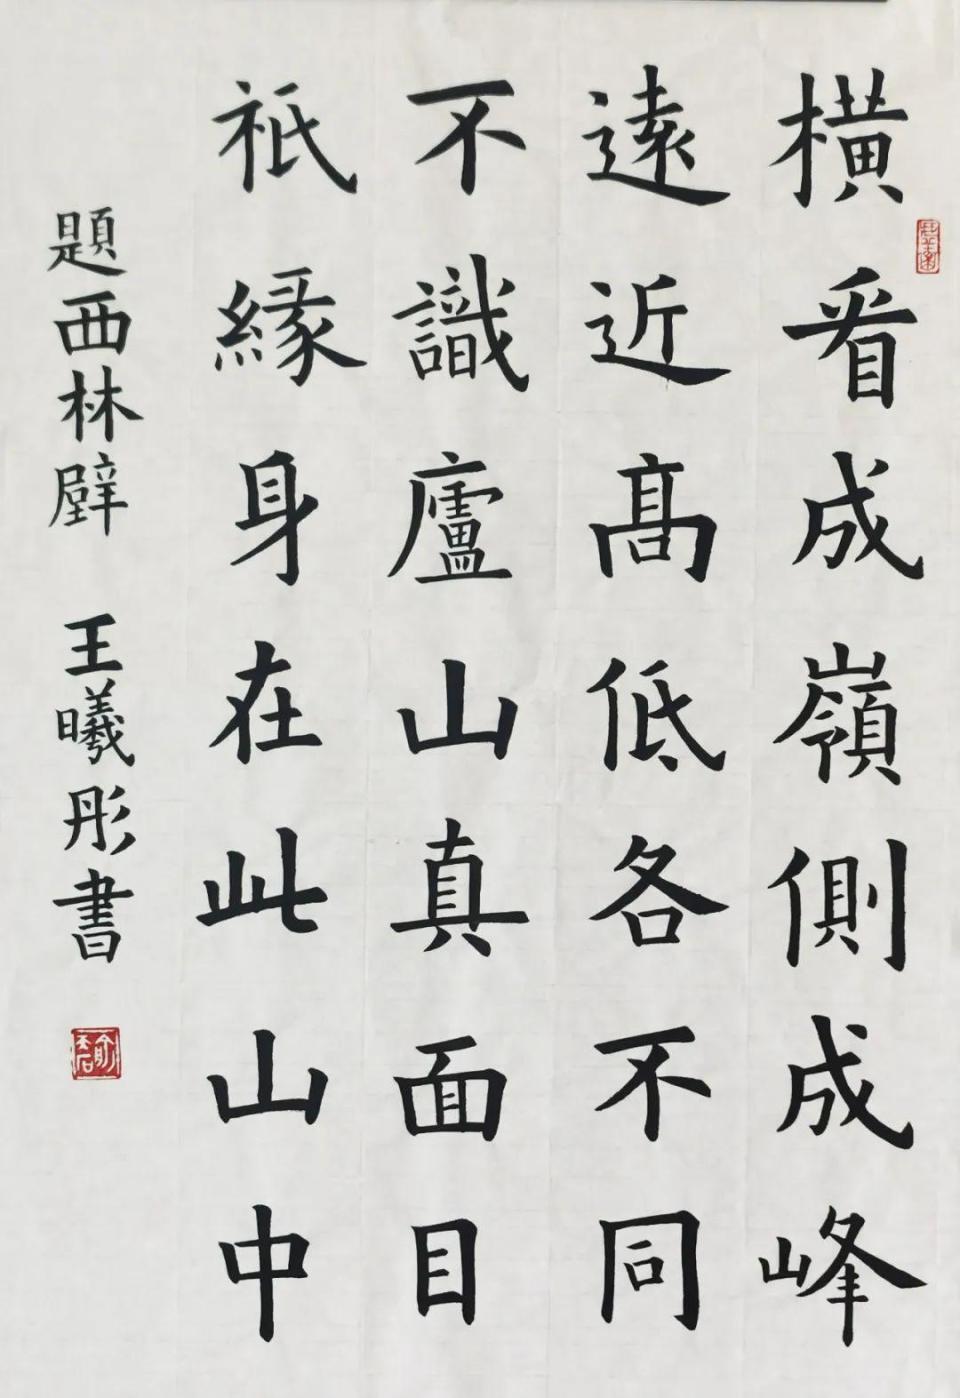 橫看成嶺側成峰
遠近高低各不同
不識廬山真面目
祇緣身在此山中
題西林壁 王曦彤書